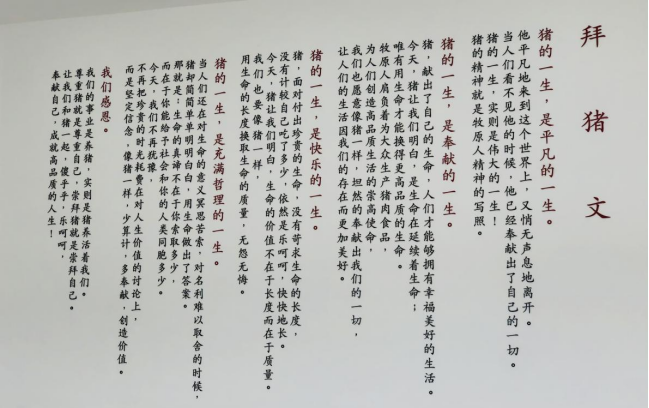 拜猪文
猪的一生，是平凡的一生。
他平凡地来到这个世界上，又悄无声息地离开。
当人们看不见他的时候，他已经奉献出了自己的一切。
猪的一生，实则是伟大的一生！
猪的精神就是牧原人精神的写照。
猪的一生，是奉献的一生。
猪，献出了自己的生命，人们才能够拥有幸福美好的生活。
今天，猪让我们明白，是生命在延续着生命；
唯有用生命才能换得更高品质的生命。
牧原人肩负着为大众生产猪肉食品，
为人们创造高品质生活的崇高使命，
我们也愿意像猪一样，坦然的奉献出我们的一切，
让人们的生活因我们的存在而更加美好。
猪的一生，是快乐的一生。
猪，面对付出珍贵的生命，没有苛求生命的长度，
没有计较自己吃了多少，依然是乐呵呵，快快地长。
今天，猪让我们明白，生命的价值不在于长度而在于质量。
我们也要像猪一样，
用生命的长度换取生命的质量，无怨无悔。
猪的一生，是充满哲理的一生。
当人们还在对生命的意义冥思苦索，对名利难以取舍的时候，
猪却简简单单明明白白，用生命做出了答案。
那就是：生命的真谛不在于你索取多少，
而在于你能给予社会和你的人类同胞多少。
今天，我们不再犹豫，
不再把珍贵的时光耗费在对人生价值的讨论上，
而是坚定信念，像猪一样，少算计，多奉献，创造价值。
我们感恩。
我们的事业是养猪，实则是猪养活着我们。
尊重猪就是尊重自己，崇拜猪就是崇拜自己。
让我们和猪一起，傻乎乎，乐呵呵，
奉献自己，成就高品质的人生！